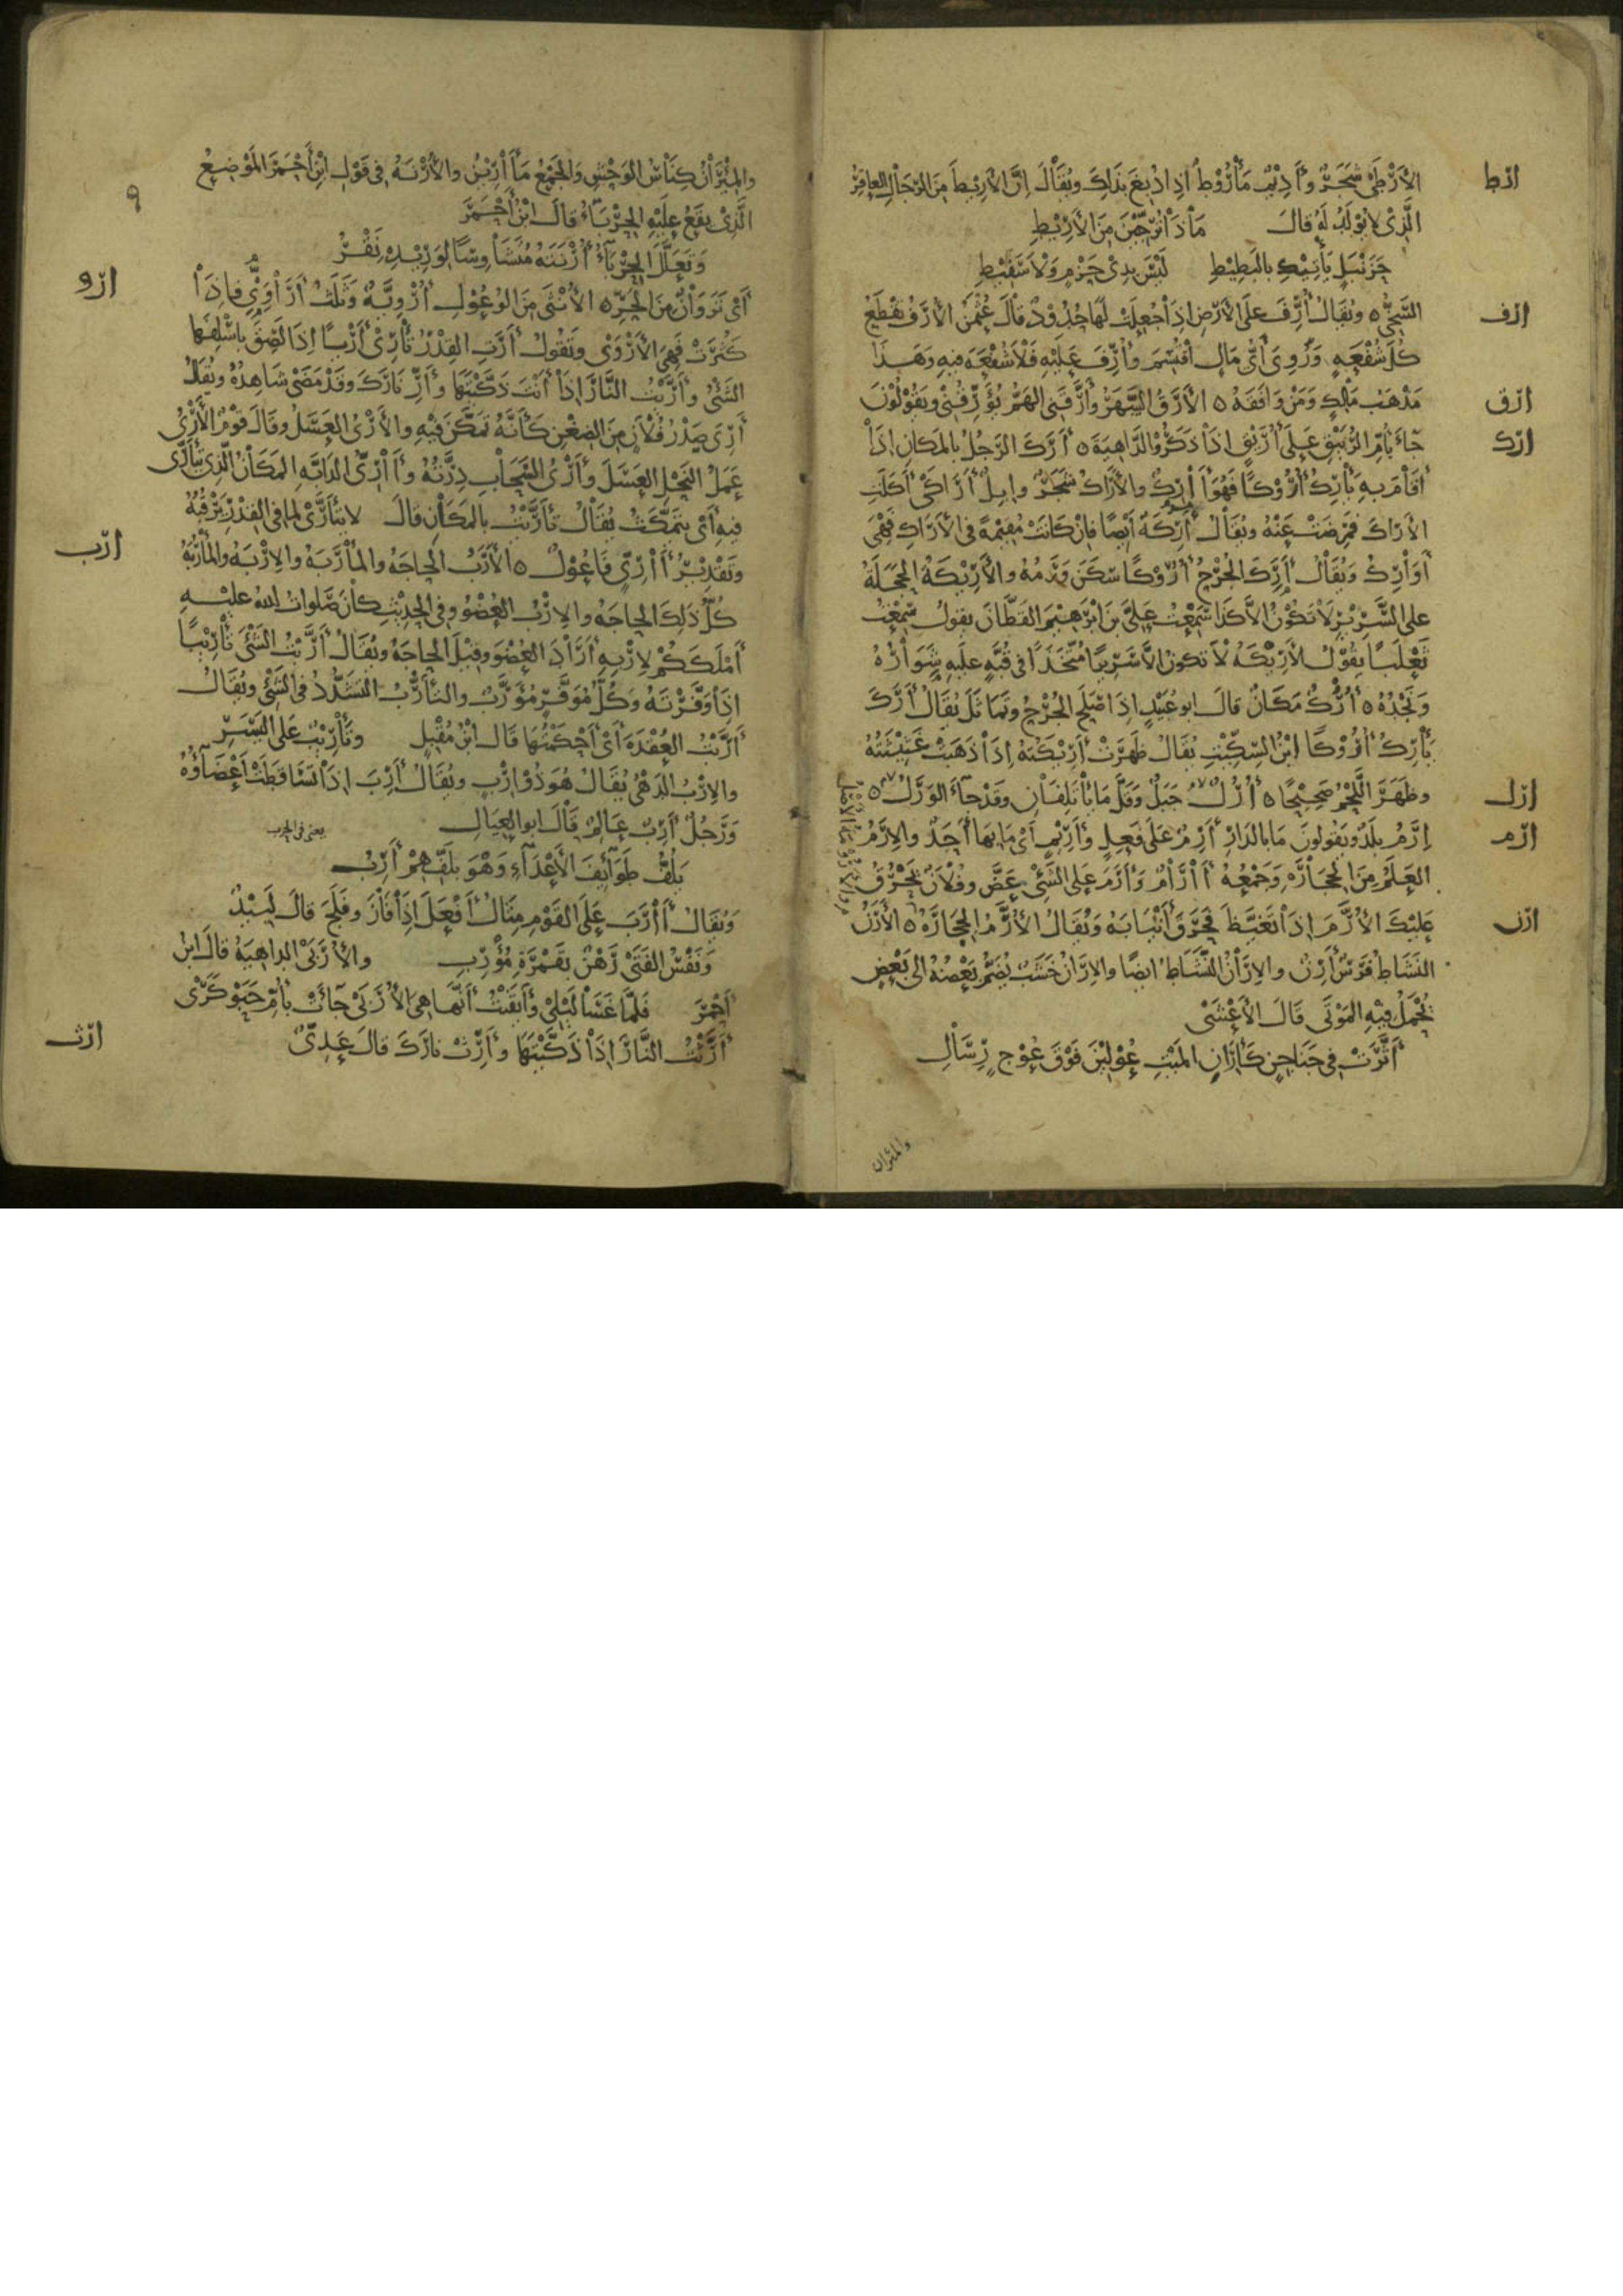 ارط
الأَرْطَى شَجَرٌ وأَدِيْمٌ مَأْرُوْطٌ اذا دُبِغَ بذلِكَ ويُقَالُ اِنَّ الأَرِيْطَ مِنَ الرِّجَالِ العاقِرُ
الَّذِىْ لا يُوْلَدُ لَهُ قالَ مَاذَا تُرَجِّيْنَ مِنَ الأَرِيْطِ
حَزَنْبَلٍ يَأْتِيْكِ بالبَطِيْطِ لَيْسَ بِذِىْ حَزْمٍ وَلَا سَفِيْطِ
ارف
السَّخِىُّ ٥ ويُقَالُ أُرِّفَ عَلَى الأَرْضِ اذا جُعِلَتْ لَهَا حُدُوْدٌ قالَ عُثْمٰنُ الأُرَفُ تَقْطَعُ
كُلَّ شُفْعَةٍ ورُوِىَ أَىُّ مالٍ اقْتُسِمَ وأُرِّفَ عَلَيْهِ فَلَا شُفْعَةَ فِيهِ وَهٰذَا
ارق
مَذْهَبُ مٰلِكٍ وَمَنْ وَافَقَهُ ٥ الأَرَقُ السَّهَرُ وأَرَّقَنِى الهَمُّ يُؤَرِّقُنِىْ ويَقُوْلُوْنَ
ارك
جآءَ بِأُمِّ الرُّبَيْقِ عَلَى أُرَيْقٍ اذا ذَكَرُوْا الدَّاهِيَةَ ٥ أَرَكَ الرَّجُلُ بالمَكانِ اذَا
أَقَامَ بِهِ يَأْرِكُ أُرُوْكًا فَهُوَ أَارِكٌ والأَرَاكُ شَجَرٌ وابِلٌ أَرَاكَى أَكَلَتِ
الأَرَاكَ فَمَرِضَتْ عَنْهُ ويُقَالُ أَرِكَةٌ أَيْضًا فاِنْ كَانَتْ مُقِيْمَةً فى الأَرَاكِ فَهِىَ
أَوَارِكُ ويُقَالُ أَرِكَ الجُرْحُ أُرُوْكًا سَكَنَ وَرَمُهُ والأَرِيْكَةُ الحَجَلَةُ
على السَّرِيْرِ لَا تَكُوْنُ الّا كَذَا سَمِعْتُ عَلِىَّ بنَ ابْرٰهِيْمَ القَطَّانَ يقولُ سَمِعْتُ
ثَعْلَبًا يقُوْلُ الأَرِيْكَةُ لَا تكونُ الّا سَرِيْرًا مُتَّخَذًا فى قُبَّةٍ علَيهِ شِوَارُهُ
ونَجْدُهُ ٥ أُرُكٌ مَكَانٌ قالَ ابو عُبَيْدٍ اذا صَلَحَ الجُرْحُ وتَمَاثَلَ يُقَالُ أَرَكَ
يَأْرِكُ أُرُوْكًا ابْنُ السِّكِّيْتِ يُقَالُ ظَهَرَتْ أَرِيْكَتُهُ اذَا ذَهَبَتْ غَثِيْثَتُهُ
ارل
وظَهَرَ اللَّحْمُ صَحِيْحًا ٥ أُرُلٌ جَبَلٌ وَقَلَّ مَا يَأْتَلِفَانِ وقَدْ جآءَ الوَرَلُ ٥
ارم
اِرَمُ بلَدٌ ويَقُولونَ مَا بالدَّارِ أَرِمٌ عَلَى فَعِلٍ وأَرِيْمٌ أَىْ مَا بِهَا أَحَدٌ والاِرَمُ
العَلَمُ مِنَ الحِجَارَةِ وَجَمْعُهُ أَارَامٌ وَأَرَمَ عَلَى الشَّئْ عَضَّ وفُلَانٌ يَحْرُقُ
ارن
عَلَيْكَ الأُرَّمَ اذَا تَغَيَّظَ فَحَرَقَ أَنْيَابَهُ وَيُقَالُ الأُرَّمُ الحِجَارَةُ ٥ الأَرَنُ
النَّشَاطُ فَرَسٌ أَرِنٌ والاِرَانُ النَّشَاطُ ايضًا والاِرَانُ خَشَبٌ يُضَمُّ بَعْضُهُ الى بَعْضٍ
يُحْمَلُ فِيْهِ المَوْتَى قالَ الأَعْشَى
أَثَّرَتْ فى جَنَاجِنٍ كَاِرَانِ المَيْتِ عُوْلِيْنَ فَوْقَ عُوْجٍ رِسَالِ
والمئران
٩
والمِئْرَانُ كِنَاسُ الوَحْشِ والجَمْعُ مَأَارِيْنُ والأُرْنَةُ فِى قَوْلِ ابْنِ أَحْمَرَ المَوْضِعُ
الَّذِىْ يقَعُ عَلَيْهِ الحِرْبَآءُ قالَ ابْنُ أَحْمَرَ
وتَعَلَّلَ الحِرْبَآءُ أُرْنَتَهُ مُتَشَاوِسًا لِوَرِيْدِهِ نَقْرُ
ارو
أَىْ نَزَوَانٌ مِنَ الحَرِّ ٥ الأُنْثَى مِنَ الوُعُوْلِ أُرْوِيَّةٌ وثَلٰثُ أَرَاوِىَّ فاِذَا
كَثُرَتْ فَهِىَ الأَرْوَى وتَقُولُ أَرَتِ القِدْرُ تَأْرِىْ أَرْيًا اذَا لَصِقَ بِاَسْفَلِهَا
الشَّئُ وأَرَّيْتُ النَّارَ اذَا أَنْتَ ذَكَّيْتَهَا وأَرِّ نَارَكَ وقَدْ مَضَى شَاهِدُهُ ويُقَالُ
أَرِىَ صَدْرُ فُلَانٍ مِنَ الضِّغْنِ كَأَنَّهُ تَمَكَّنَ فِيْهِ والأَرْىُ العَسَلُ وقَالَ قَوْمٌ الأَرْىُ
عَمَلُ النَّحْلِ العَسَلَ وأَرْىُ السَّحَابِ دِرَّتُهُ وأَارِىُّ الدَّابَّةِ المَكَانُ الَّذِىْ تَتَأَرَّى
فِيهِ أَىْ يَتَمَكَّثُ يُقَالُ تَأَرَّيْتُ بالمَكَانِ قالَ لا يَتَأَرَّى لِمَا فِى القِدْرِ يَرْقُبُهُ
ارب
وتَقْدِيْرُ أَارِىٍّ فَاعُوْلٌ ٥ الأَرَبُ الحاجَةُ والمَأْرَبَةُ والاِرْبَةُ والمَأْرُبَةُ
كُلُّ ذلِكَ الحاجَةُ والاِرْبُ العُضْوُ وفِى الحَدِيْثِ كانَ صَلَواتُ اللهِ عليْهِ
أَمْلَكَكُمْ لِاِرْبِهِ أَرَادَ العُضْوَ وقِيْلَ الحاجَةَ ويُقَالُ أَرَّبْتُ الشَّئْ تَأْرِيْبًا
اذَا وَفَّرْتَهُ وكُلُّ مُوَفَّرٍ مُؤَرَّبٌ والتَّأَرُّبُ التَّشَدُّدُ فى الشَّئْ ويُقَالُ
أَرَّبْتُ العُقْدَةَ أَىْ أَحْكَمْتُهَا قالَ ابْنُ مُقْبِلٍ وتَأْرِيْبٌ عَلَى اليَسَرِ
والاِرْبُ الدَّهْىُ يُقَالُ هُوَ ذُوْ اِرْبٍ ويُقَالُ أَرِبَ اذَا تَسَاقَطَتْ أَعْضَآؤُهُ
وَرَجُلٌ أَرِبٌ عَالِمٌ قَالَ ابو العِيَالِ يعنى فى الحرب
يَلُفُّ طَوَآئِفَ الأَعْدَآءِ وَهْوَ بِلَفِّهِمْ أَرِبُ
ويُقَالُ أَارَبَ عَلَى القَوْمِ مِثَالُ أَفْعَلَ اذَا فَازَ وفَلَجَ قالَ لَبِيْدٌ
ونَفْسُ الفَتَى رَهْنٌ بِقَمْرَةِ مُؤْرِبِ والأُرَبَى الدَّاهِيَةُ قالَ ابنُ
أَحْمَرَ فَلَمَّا غَسَا لَيْلِىْ وأَيْقَنْتُ أَنَّهَا هِىَ الأُرَبَى جَآءَتْ بِأُمِّ حَبَوْكَرَى
ارث
أَرَّثْتُ النَّارَ اذَا ذَكَّيْتَهَا وأَرِّثْ نارَكَ قالَ عَدِىٌّ